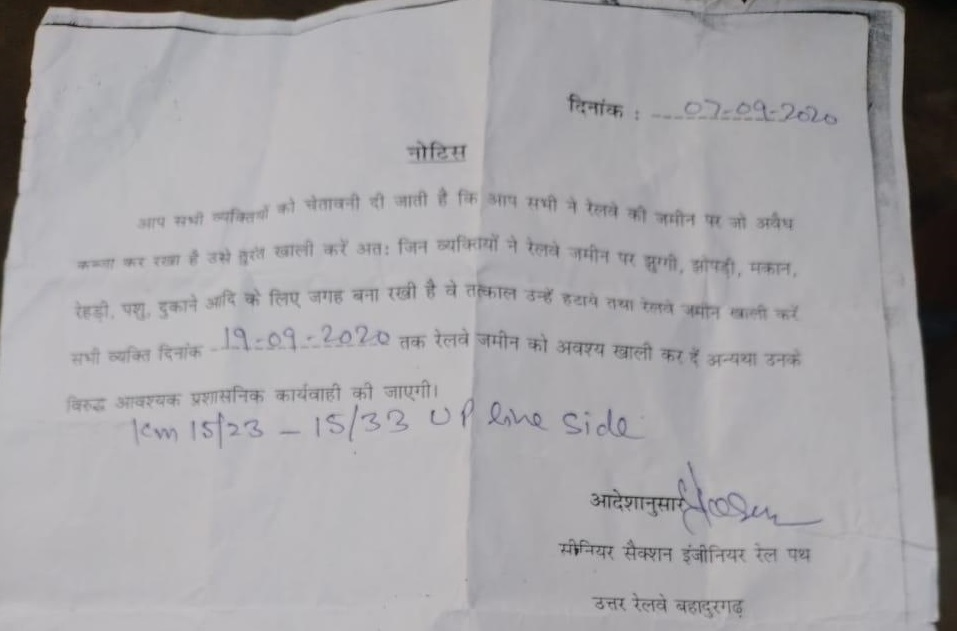 दिनांक : 07-09-2020
नोटिस
आप सभी व्यक्तियों को चेतावनी दी जाती है कि आप सभी ने रेलवे की जमीन पर जो अवैध
कब्जा कर रखा है उसे तुरंत खाली करें अतः जिन व्यक्तियों ने रेलवे जमीन पर झुग्गी, झोपड़ी, मकान,
रेहड़ी, पशु, दुकाने आदि के लिए जगह बना रखी है वे तत्काल उन्हें हटाये तथा रेलवे जमीन खाली करें
सभी व्यक्ति दिनांक 19-09-2020 तक रेलवे जमीन को अवश्य खाली कर दें अन्यथा उनके
विरुद्ध आवश्यक प्रशासनिक कार्यवाही की जाएगी।
Km 15/23 – 15/33 UP line side
आदेशानुसार
सीनियर सैक्शन इंजीनियर रेल पथ
उत्तर रेलवे बहादुरगढ़